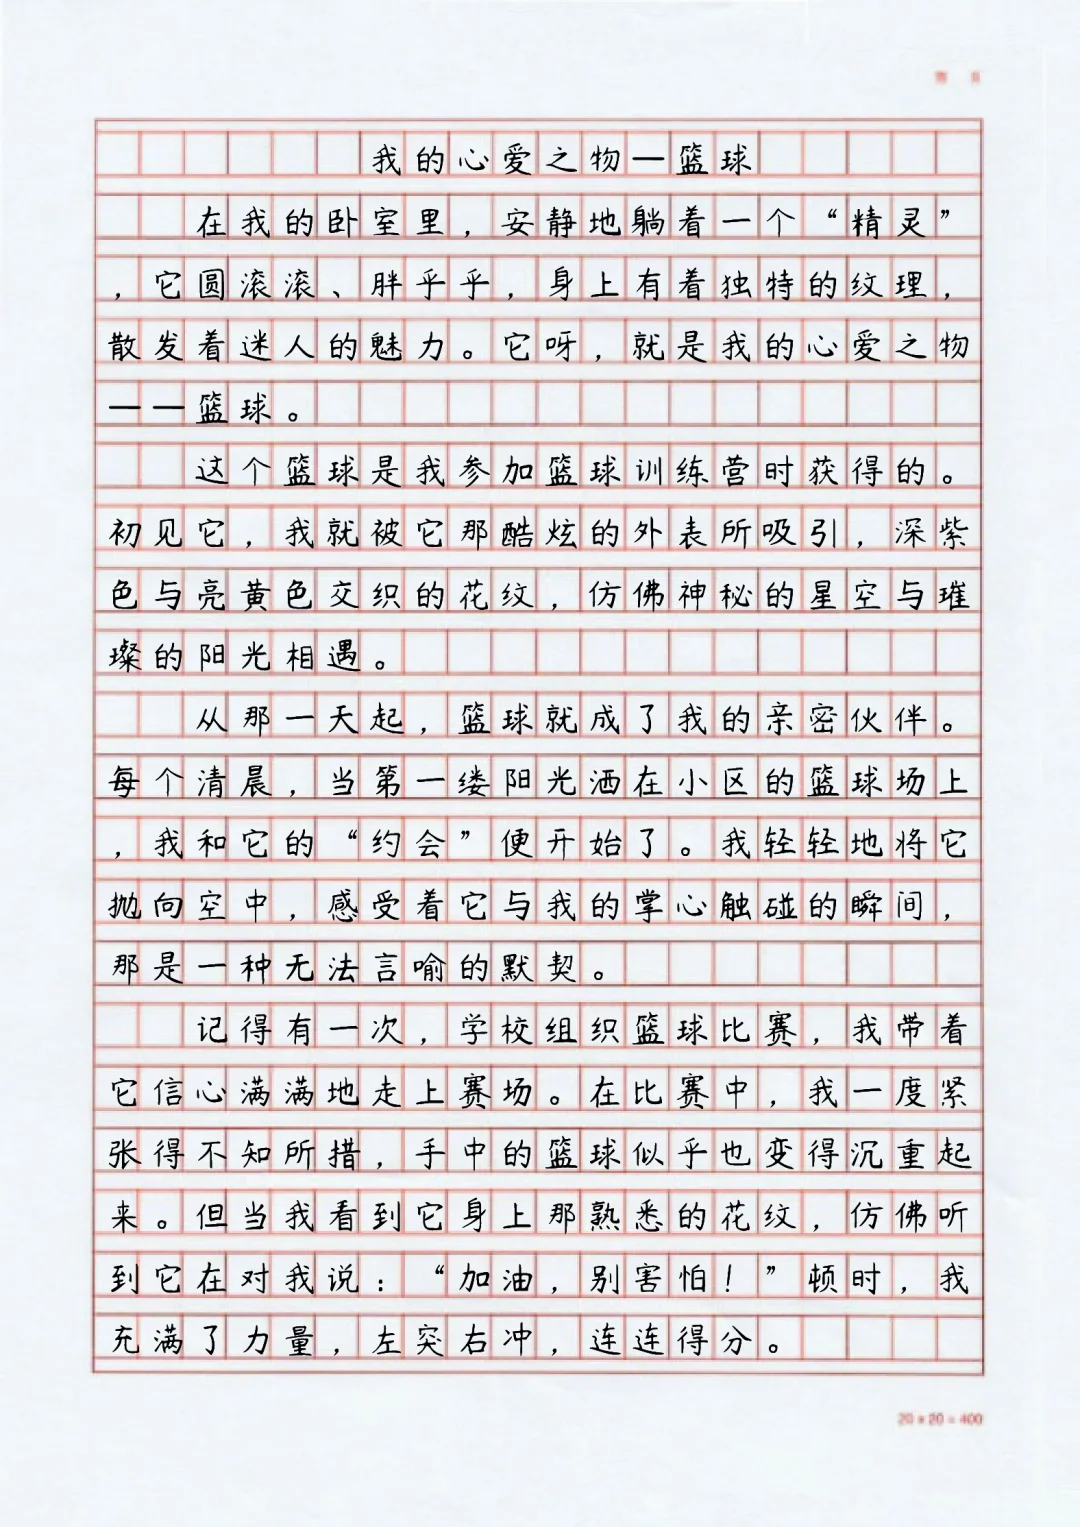 我的心爱之物—篮球
在我的卧室里，安静地躺着一个“精灵”
，它圆滚滚、胖乎乎，身上有着独特的纹理，
散发着迷人的魅力。它呀，就是我的心爱之物
——篮球。
这个篮球是我参加篮球训练营时获得的。
初见它，我就被它那酷炫的外表所吸引，深紫
色与亮黄色交织的花纹，仿佛神秘的星空与璀
璨的阳光相遇。
从那一天起，篮球就成了我的亲密伙伴。
每个清晨，当第一缕阳光洒在小区的篮球场上
，我和它的“约会”便开始了。我轻轻地将它
抛向空中，感受着它与我的掌心触碰的瞬间，
那是一种无法言喻的默契。
记得有一次，学校组织篮球比赛，我带着
它信心满满地走上赛场。在比赛中，我一度紧
张得不知所措，手中的篮球似乎也变得沉重起
来。但当我看到它身上那熟悉的花纹，仿佛听
到它在对我说：“加油，别害怕！”顿时，我
充满了力量，左突右冲，连连得分。
20×20=400